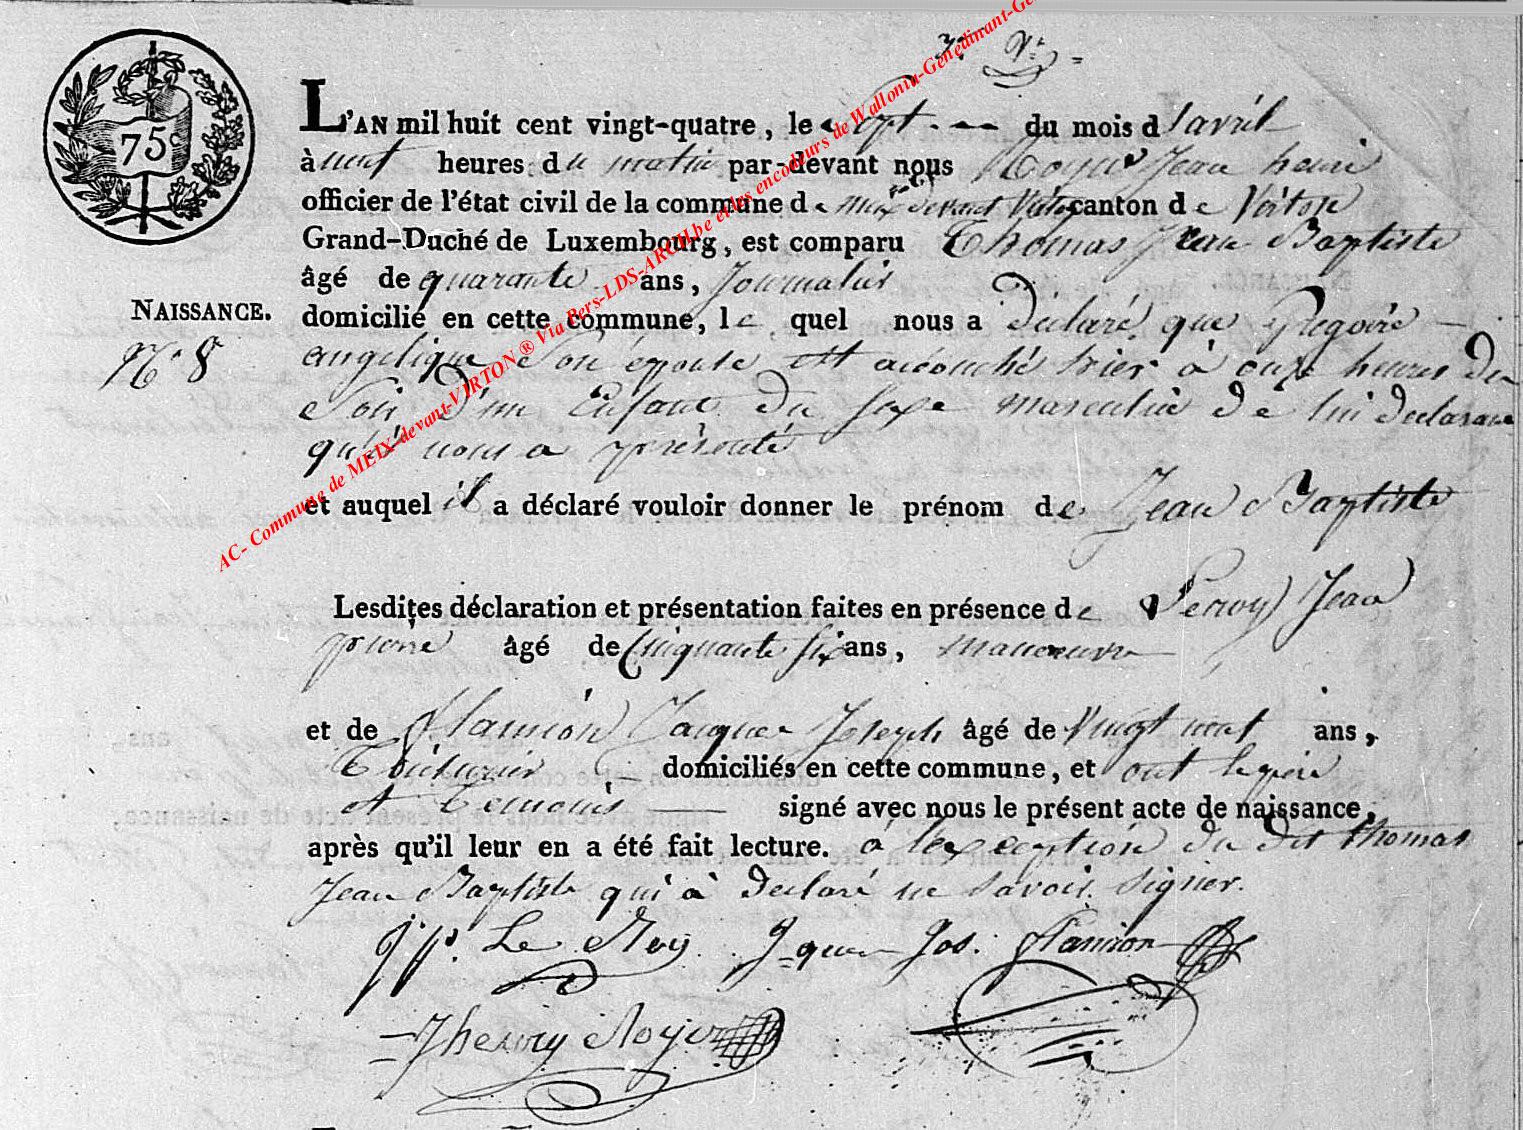 75c
L'AN mil huit cent vingt-quatre, le sept du mois d'avril
à neuf heures du matin par-devant nous Royer Jean henri
officier de l'état civil de la commune de meix devant Virton canton de Virton
Grand-Duché de Luxembourg, est comparu Thomas Jean Baptiste
âgé de quarante ans, Journalier
NAISSANCE.
domicilié en cette commune, lequel nous a déclaré que Gregoire
N.° 8
angelique son épouse est accouché hier à onze heures du
soir d'un Enfant du sexe masculin de lui declarant
qu'il nous a présenté
et auquel il a déclaré vouloir donner le prénom de Jean Baptiste
Lesdites déclaration et présentation faites en présence de Leroy Jean
pierre âgé de Cinquante six ans, manoeuvre
et de flamion Jacques Joseph âgé de Vingt neuf ans,
domiciliés en cette commune, et ont le père
et Temoins signé avec nous le présent acte de naissance,
après qu'il leur en a été fait lecture. à l'exception du dit thomas
Jean Baptiste qui à declaré ne savoir signer.
J. p. Le Roy Jques Jos. flamion
Jhenry Royer
AC- Commune de MEIX-devant-VIRTON ® Via Pers-LDS-ARCH.be et les encodeurs de Wallonia-Genedinant-Ge